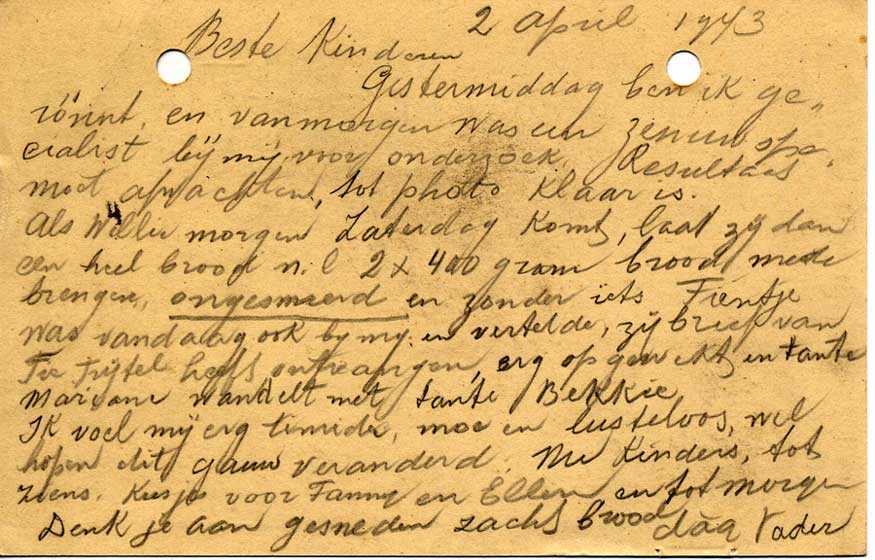 2 april 1943
Beste Kinderen
Gistermiddag ben ik ge„
rönnt, en vanmorgen was een zenuw spe„
cialist bij mij voor onderzoek. Resultaat
moet afwachten, tot photo klaar is.
Als Willie morgen Zaterdag komt, laat zij dan
een heel brood n.l 2 x 400 gram brood mede
brengen, ongesmeerd en zonder iets Fientje
was vandaag ook bij mij en vertelde, zij brief van
heeft ontvangen, erg opgewekt en tante
Mariane wandelt met tante Bekkie
Ik voel mij erg timide, moe en lusteloos, wil
hopen dit gauw veranderd. Nu Kinders, tot
ziens. Kusjes voor Fanny en Ellen en tot morgen
Denk je aan gesneden zacht brood dag Vader